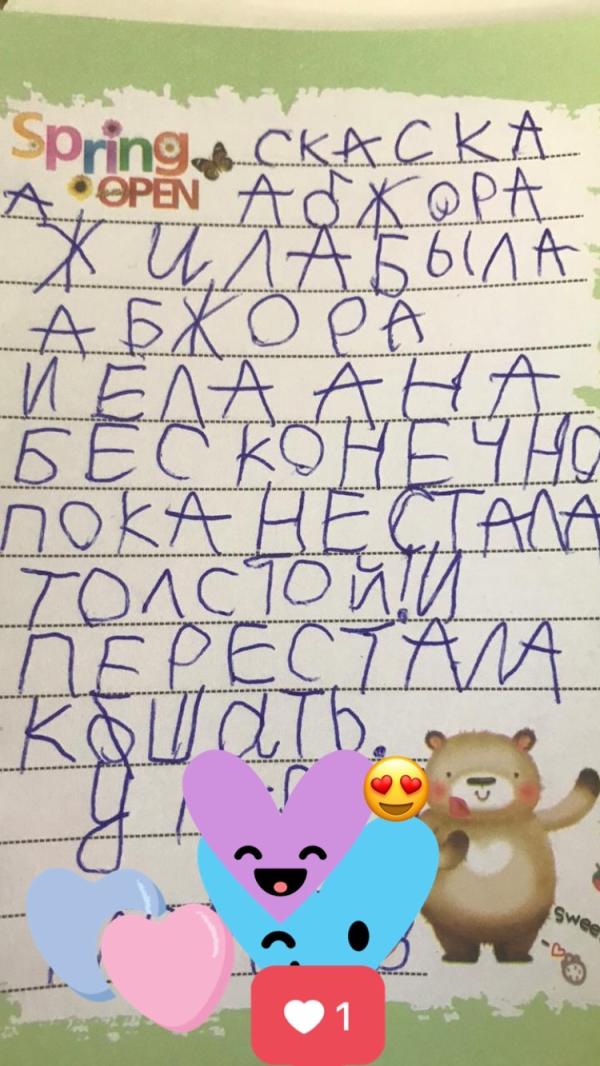 Spring СКАСКА
OPEN
А АбЖОРА
ЖИЛА БЫЛА
АБЖОРА
И ЕЛА АНА
БЕСКОНЕЧНО
ПОКА НЕ СТАЛА
ТОЛСТОЙ! И
ПЕРЕСТАЛА
КУШАТЬ.
1